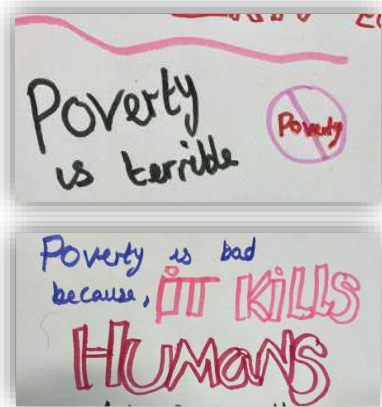 Poverty
is terrible
Poverty
Poverty is bad
because, IT KiLLS
HUMANS